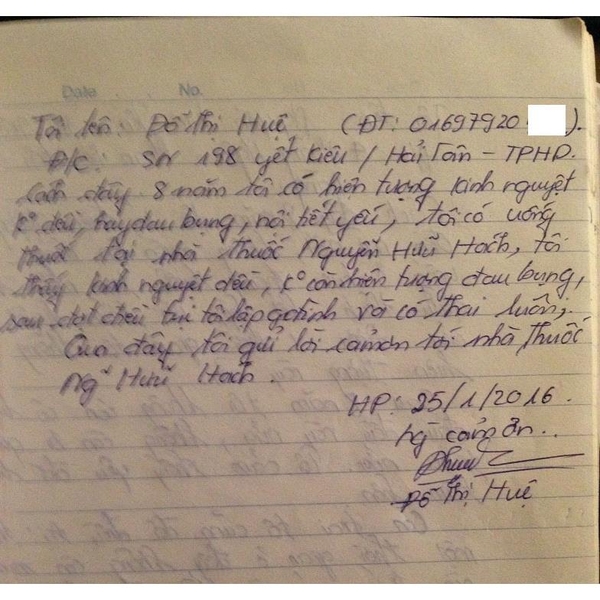 Date No.
Tôi tên: Đỗ Thị Huệ (ĐT: 01697920 ).
Đ/C: SN 198 Yết Kiêu / Hải Tân - TPHD.
Cách đây 8 năm tôi có hiện tượng kinh nguyệt
K° đều, hay đau bụng, nội tiết yếu, tôi có uống
thuốc tại nhà thuốc Nguyễn Hữu Hách, tôi
thấy kinh nguyệt đều, K° còn hiện tượng đau bụng,
sau đợt điều trị tôi lập gđình và có thai luôn,
Qua đây tôi gửi lời cảm ơn tới nhà thuốc
Ng~ Hữu Hách.
HP: 25/1/2016.
cảm ơn..
Đỗ Thị Huệ